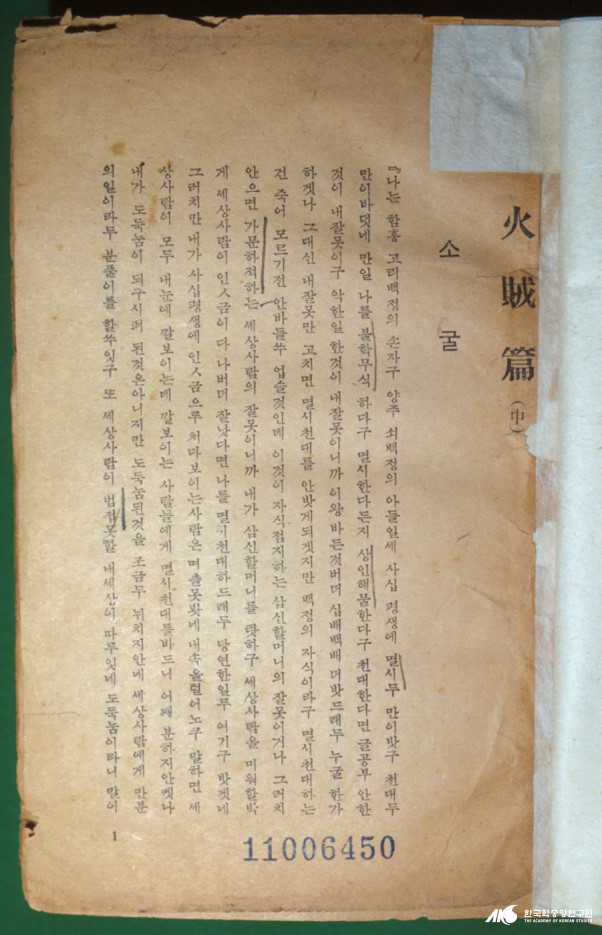 火賊篇 (中)
소굴
『나는 함흥 고리백정의 손자구 양주 쇠백정의 아들일세 사십 평생에 멸시두 만이밧구 천대두
만이바덧네 만일 나를 불학무식 하다구 멸시한다든지 상인해물한다구 천대한다면 글공부 안한
것이 내잘못이구 악한일 한것이 내잘못이니까 이왕 바든것버더 십배백배 더밧드래두 누굴 한가
하겟나 그대신 내잘못만 고치면 멸시천대를 안밧게되겟지만 백정의 자식이라구 멸시천대하는
건 죽어 모르기전 안바들쑤 업슬것인데 이것이 자식점지하는 삼신할머니의 잘못이거나 그러치
안으면 가문하적하는 세상사람의 잘못이니까 내가 삼신할머니를 탓하구 세상사람을 미워할박
게 세상사람이 인스금이 다 나버더 잘낫다면 나를 멸시천대하드래두 당연한일루 여기구 밧겟네
그러치만 내가 사십평생에 인스금으루 처다보이는사람은 며츨못봣네 내속을털어노쿠 말하면 세
상사람이 모두 내눈에 깔보이는데 깔보이는 사람들에게 멸시천대를바드니 어째 분하지안켓나
내가 도둑놈이 되구시퍼 된것은아니지만 도둑놈된것을 조금두 뉘치지안네 세상사람에게 만분
의일이라두 분풀이를 할쑤잇구 또 세상사람이 범접못할 내세상이 따루잇네 도둑놈이라니 말이
1
11006450
한국학중앙연구원
THE ACADEMY OF KOREAN STUDIES